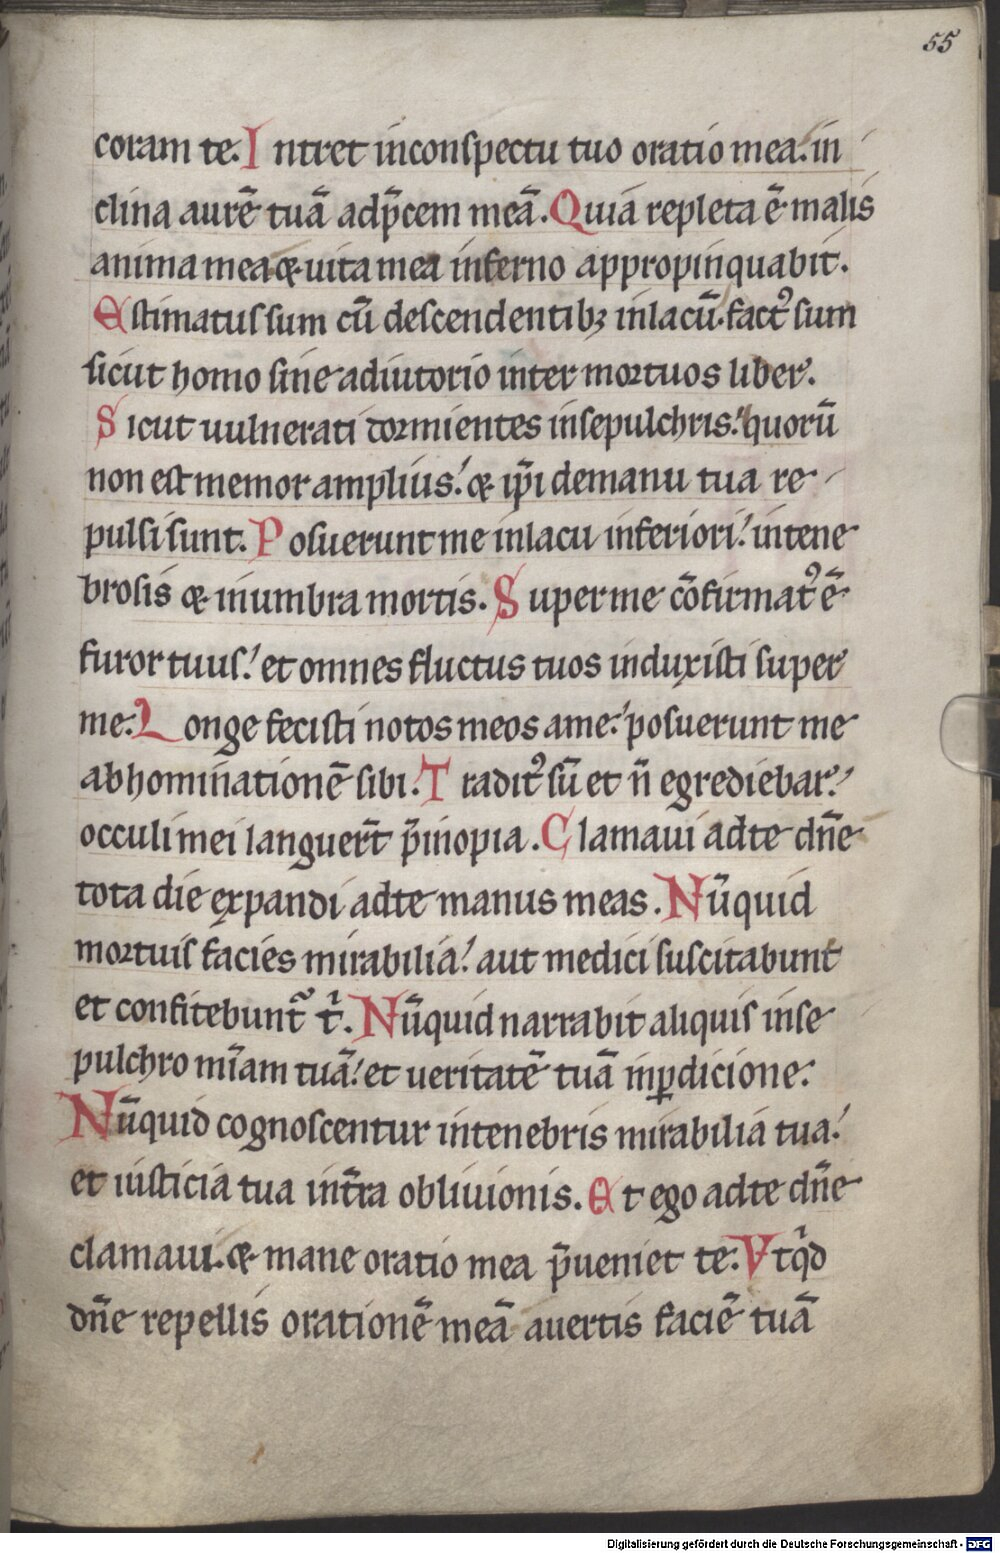 55
coram te. Intret inconspectu tuo oratio mea. in
clina aurē tuā adp̄cem meā. Quia repleta ē malis
anima mea & uita mea inferno appropinquabit.
Estimatus sum cū descendentibꝫ inlacū. fact᾽ sum
sicut homo sine adiutorio inter mortuos liber.
Sicut uulnerati dormientes insepulchris. quorū
non est memor amplius. & ip̄i demanu tua re
pulsi sunt. Posuerunt me inlacu inferiori. intene
brosis & inumbra mortis. Super me cōfirmat᾽ ē
furor tuus. et omnes fluctus tuos induxisti super
me. Longe fecisti notos meos ame. posuerunt me
abhominationē sibi. Tradit᾽ sū et n̄ egrediebar.
occuli mei languer̄t p̄inopia. Clamaui adte dn̄e
tota die expandi adte manus meas. Nūquid
mortuis facies mirabilia. aut medici suscitabunt
et confitebunt᷒ t̄. Nūquid narrabit aliquis inse
pulchro mīam tuā. et veritatē tuā inꝑdicione.
Nūquid cognoscentur intenebris mirabilia tua.
et iusticia tua int̄ra obliuionis. Et ego adte dn̄e
clamaui. & mane oratio mea p̄ueniet te. Vtqͥd
dn̄e repellis orationē meā auertis faciē tuā
Digitalisierung gefördert durch die Deutsche Forschungsgemeinschaft - DFG